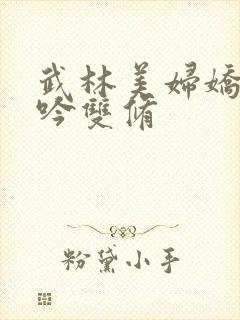 武林美婦嬌
吟雙脩
粉黛小手